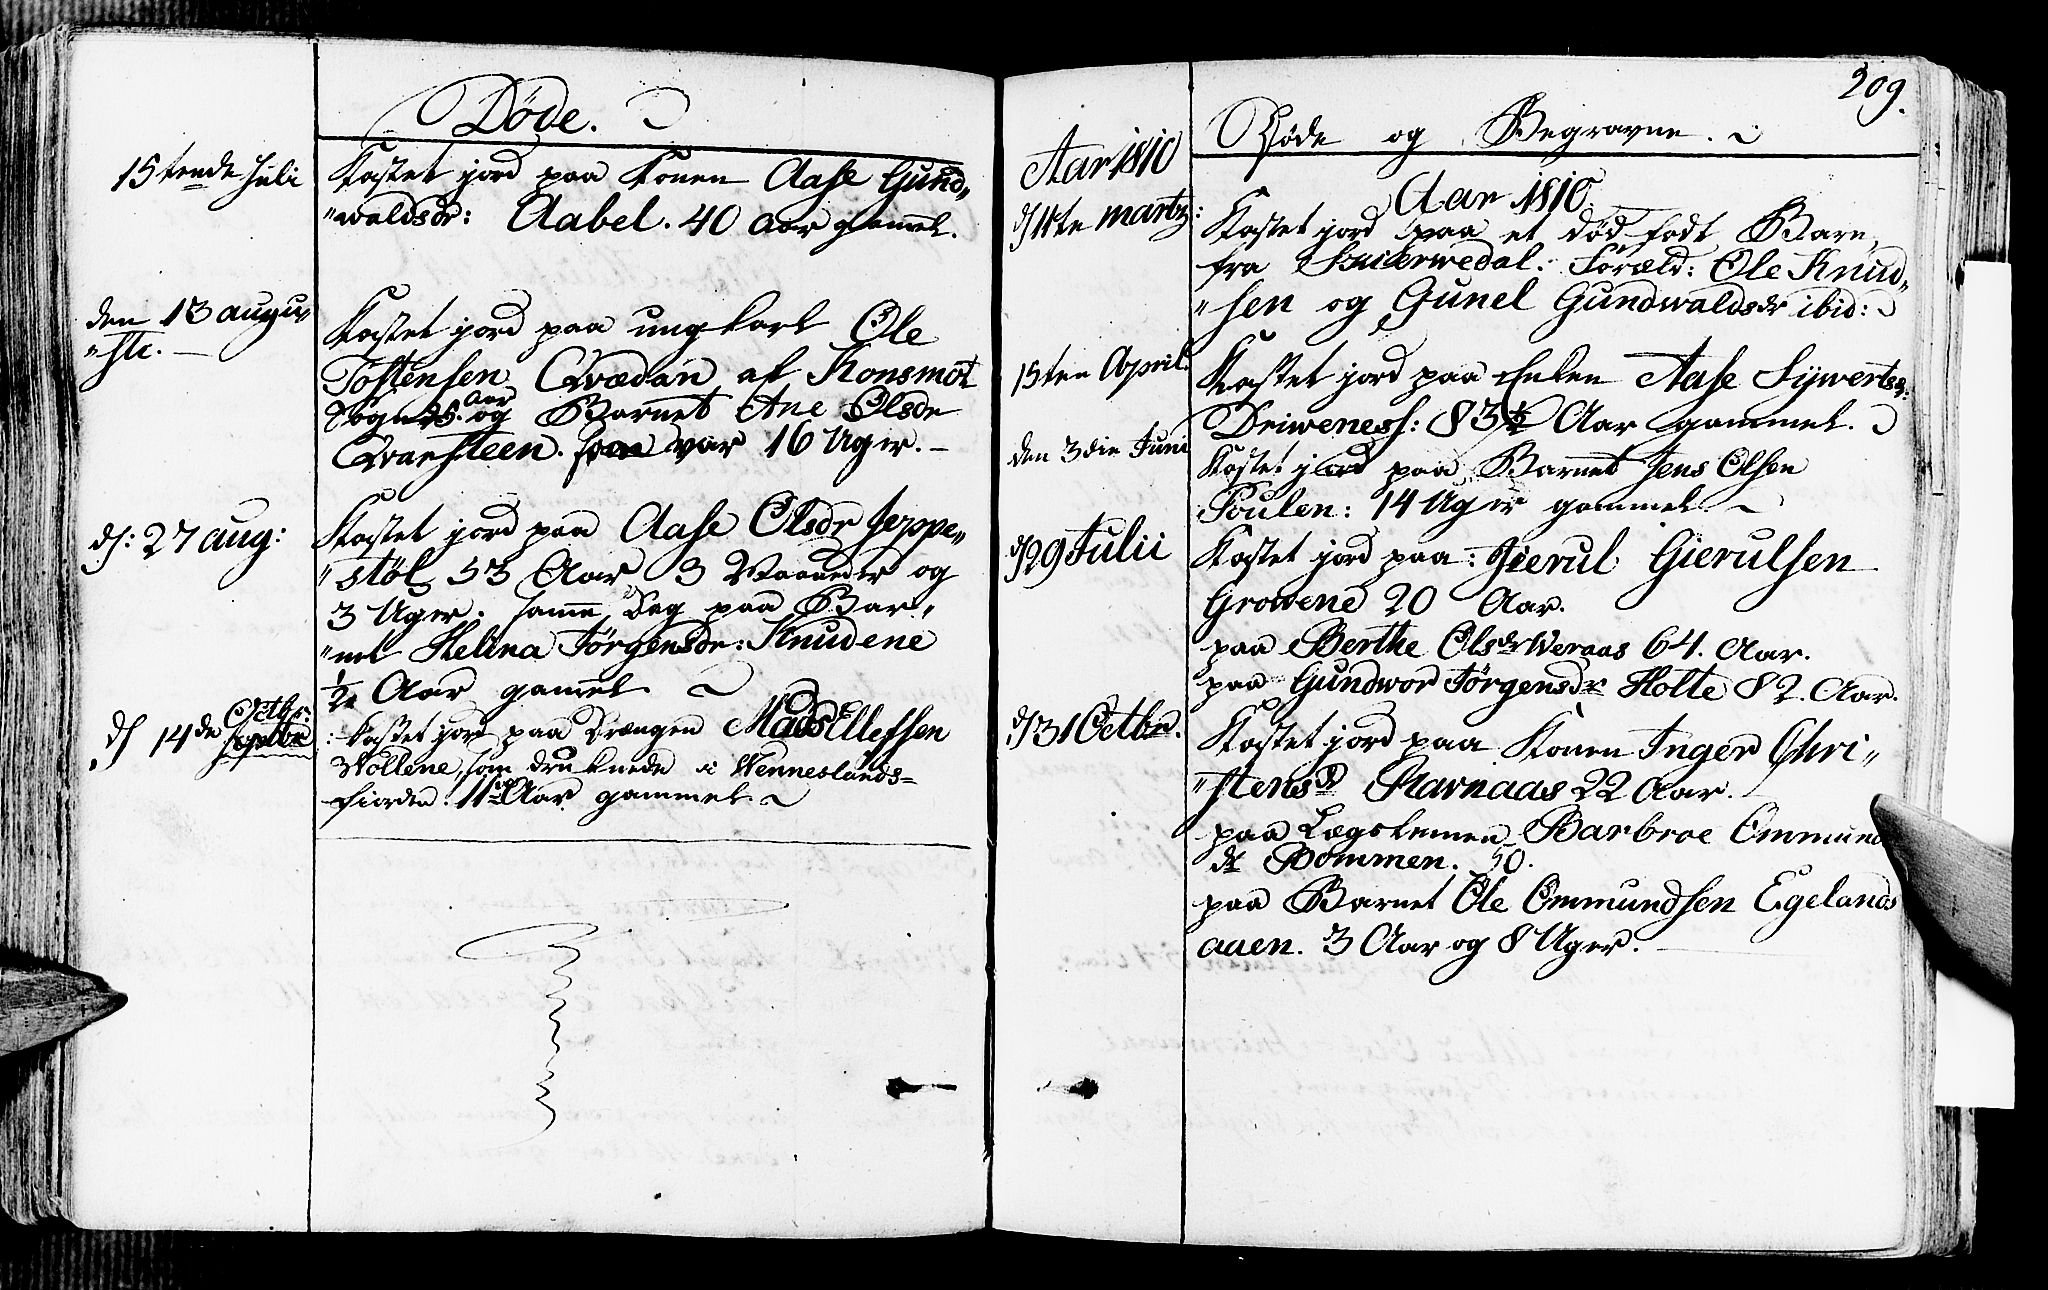 Døde.
15tende Juli
Kastet jord paa Konen Aase Gund„
„waldsdr: Aabel. 40 Aar gamel.
den 13 augu„
„sti. —
Kastet jord paa ungkarl Ole
Tostensen Qvædan af Konsmot
Sogn 25. Aar og Barnet Ane Olsdr
Qvarsteen. som var 16 Uger. —
d: 27 aug:
Kastet jord paa Aase Olsdr Jeppe„
„støl 53 Aar 3 Maaneder og
3 Uger. samme Dag paa Bar„
„net Helina Jørgensdr: Knudene
1/2 Aar gamel.
d 14de Octbr:
Septbr
: Kastet jord paa Drængen Mads Ellefsen
Wollene, som druknede i Wenneslands-
Fiorden. 11 Aar gammel.
209.
Døde og Begravne.
Aar 1810
Aar 1810.
d 11te martz:
Kastet jord paa et død født Barn,
fra Snikerwedal. Foræld: Ole Knud„
„sen og Gunel Gundwaldsdr ibid:
15ten April.
Kastet jord paa Enken Aase Sywertsdr:
Driwenesh: 83 1/2 Aar gammel.
den 3die Juni
Kastet jord paa Barnet Jens Olsen
Foulen: 14 Uger gammel
d 29 Julii
Kastet jord paa: Gierul Gierulsen
Growene 20 Aar.
paa Berthe Olsdr Weraas 64. Aar.
paa Gundwor Jørgensdr Holte 82. Aar.
d 31 Octbr.
Kastet jord paa Konen Inger Chri„
„stensd Ravnaas 22 Aar.
paa Lægslemen Barbroe Ommund
dr Bommen. 50.
paa Barnet Ole Ommundsen Egelands
aaen. 3 Aar og 8 Uger.